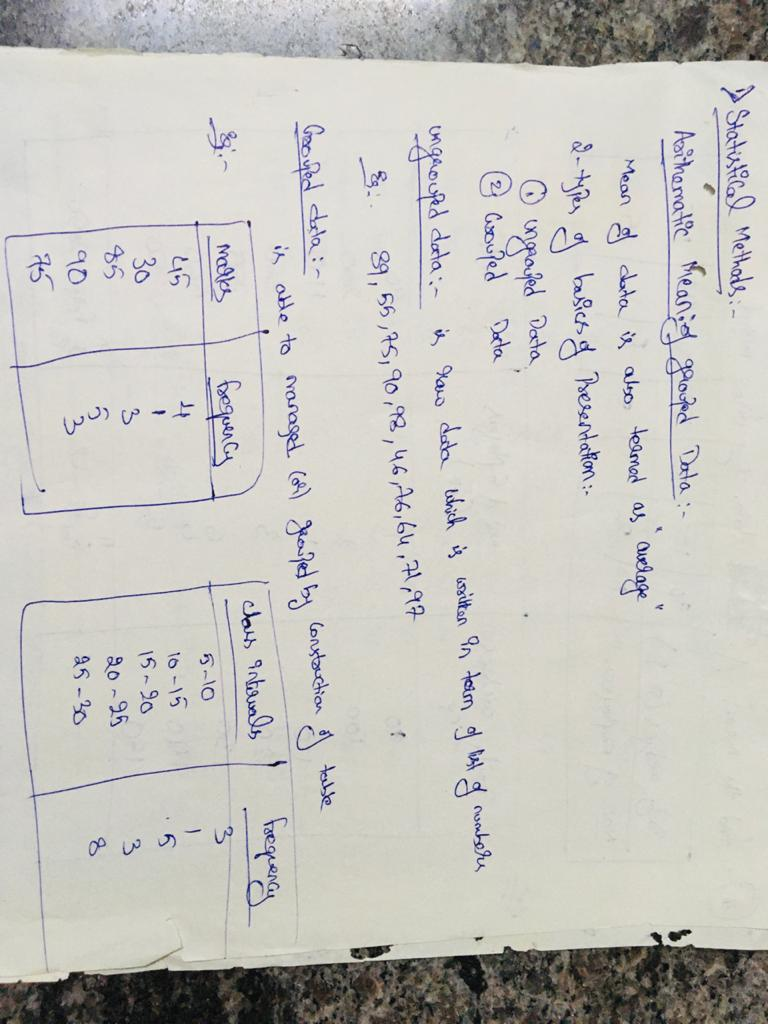 1) Statistical Methods:-
Arithematic Mean of grouped Data:-
Mean of data is also termed as "average"
2-types of basics of Presentation:-
① ungrouped Data
② Grouped Data
ungrouped data:- is raw data which is written in term of list of numbers
Eg:- 89, 55, 75, 90, 98, 46, 76, 64, 71, 97
Grouped data:- is able to managed (or) grouped by construction of table
Eg:-
Marks Frequency
45 4
30 1
85 3
90 5
75 3
class intervals frequency
5-10 3
10-15 1
15-20 5
20-25 3
25-30 8